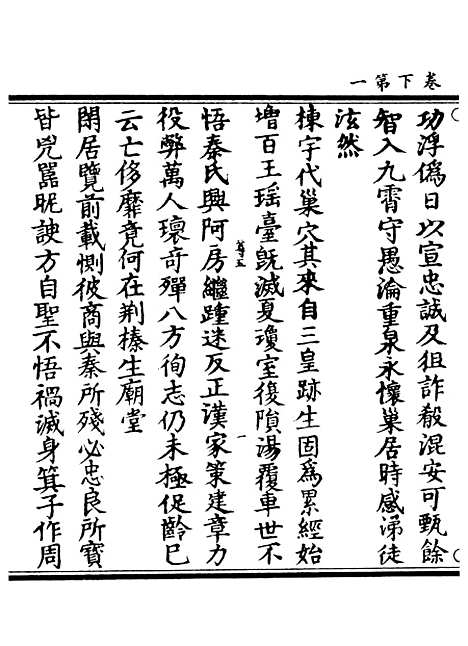 卷下第一
功浮偽日以宣忠誠及狙詐殽混安可甄餘
智入九霄守愚淪重泉永懷巢居時感涕徒
泫然
棟宇代巢穴其來自三皇跡生固為累經始
增百王瑤臺既滅夏瓊室復隕湯覆車世不
尊五
一
悟秦氏興阿房繼踵迷反正漢家策建章力
役弊萬人瓌奇殫八方徇志仍未極促齡已
云亡侈靡竟何在荆榛生廟堂
閑居覽前載惻彼商與秦所殘必忠良所寶
皆兇嚚昵諛方自聖不悟禍滅身箕子作周